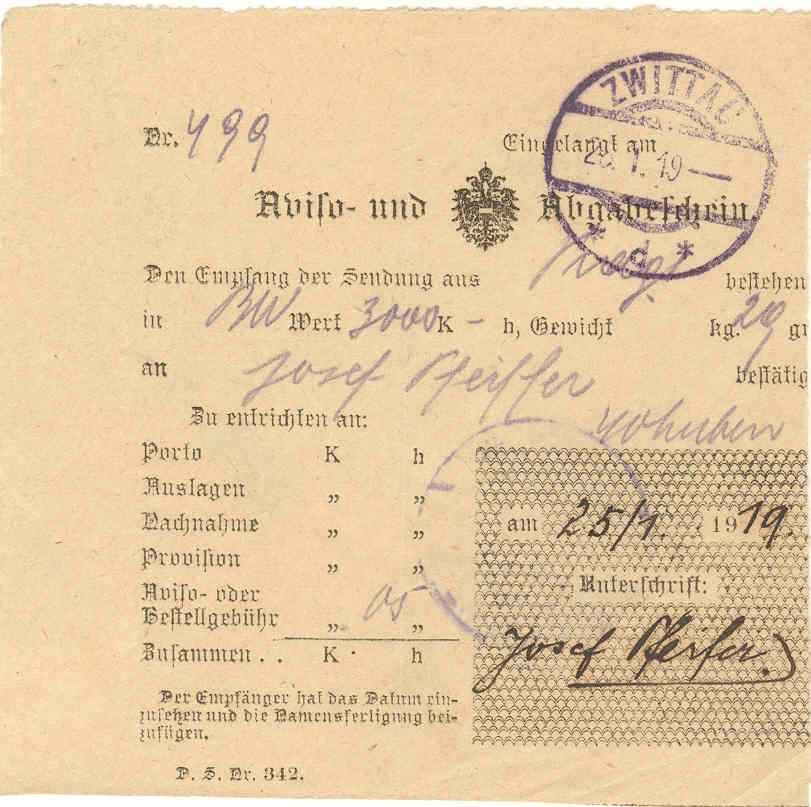 ZWITTAU
Nr. 499 Eingelangt am
1. 19
Aviso- und Abgabeschein.
* d *
Den Empfang der Sendung aus bestehen
in BW Wert 3000 K - h, Gewicht kg. 29 gr
an Josef Pfeiffer bestätig
Zu entrichten an:
Porto K h
Auslagen „ „
Nachnahme „ „
am 25/1. 1919.
Provision „ „
Unterschrift:
Aviso- oder
Bestellgebühr „ 05 „
Josef Pfeifer.
Zusammen . . K · h
Der Empfänger hat das Datum ein-
zusetzen und die Namensfertigung bei-
zufügen.
D. S. Nr. 342.